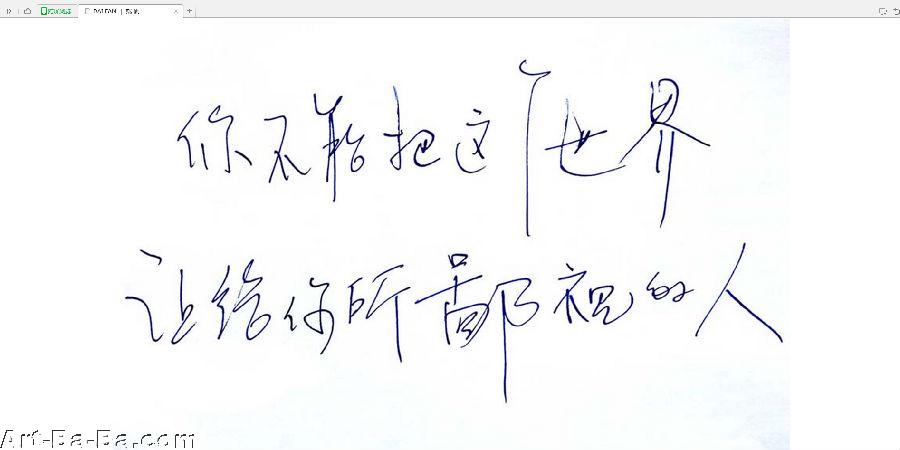 DAI FAN
你不能把这个世界
让给你所鄙视的人
Art-Ba-Ba.com